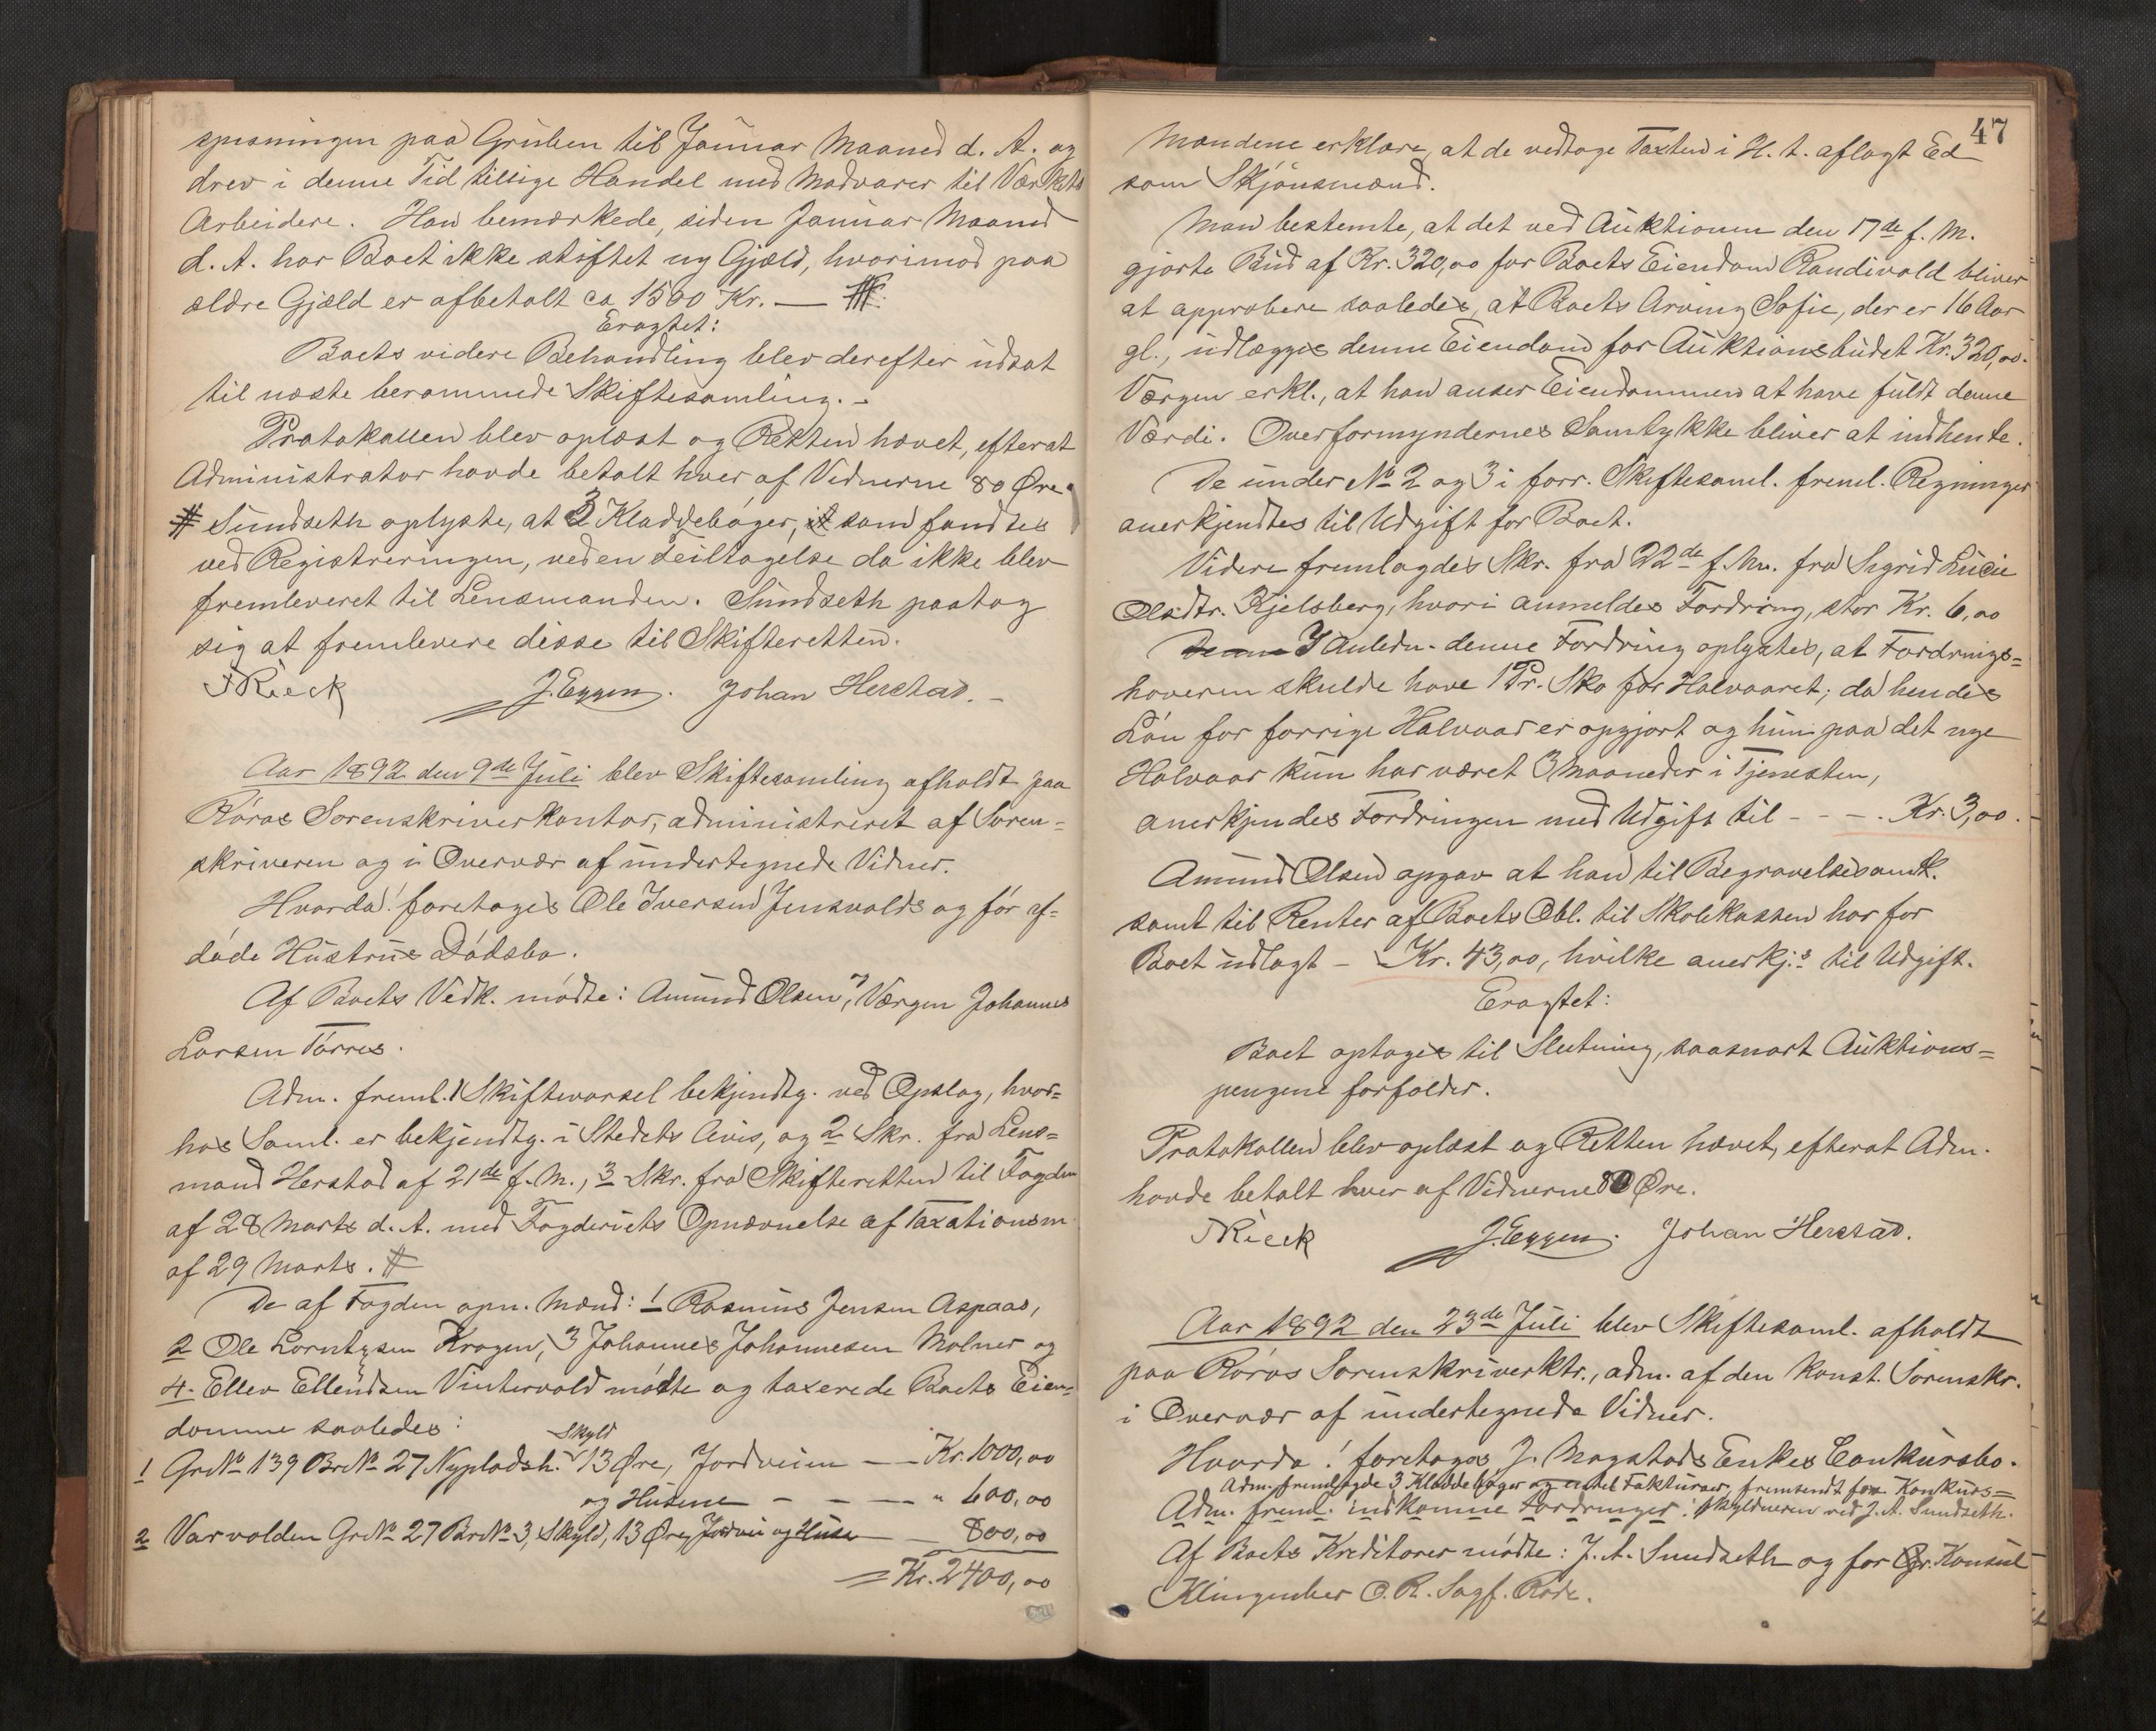 spisningen paa Gruben til Januar Maaned d. A. og
drev i denne Tid tillige Handel med Madvarer til Værkets
Arbeidere. Han bemærkede, siden Januar Maaned
d. A. har Boet ikke stiftet ny Gjæld, hvorimod paa
ældre Gjæld er afbetalt ca 1500 Kr. — #:
Eragtet:
Boets videre Behandling blev derefter udsat
til næste berammede Skiftesamling. -
Protokollen blev oplæst og Retten hævet, efterat
Administrator havde betalt hver af Vidnerne 80 Øre.
# Sundseth oplyste, at 3 Kladdebøger, som fandtes
ved Registreringen, ved en Feiltagelse da ikke blev
fremleveret til Lensmanden. Sundseth paatog
sig at fremlevere disse til Skifteretten.
Rieck J. Eggen. Johan Herstad. -
Aar 1892 den 9de Juli blev Skiftesamling afholdt paa
Røros Sorenskriverkontor, administreret af Soren-
skriveren og i Overvær af undertegnede Vidner.
Hvorda! foretoges Ole Iversen Jensvolds og før af-
døde Hustrus Dødsbo.
Af Boets Vedk. mødte: Amund Olsen, Værgen Johannes
Larsen Tørres.
Adm. freml. 1 Skiftevarsel bekjendtg. ved Opslag, hvor-
hos Saml. er bekjendtg. i Stedets Avis, og 2 Skr. fra Lens-
mand Herstad af 21de f. M., 3 Skr. fra Skifteretten til Fogden
af 28 Marts d. A. med Fogderiets Opnævnelse af Taxationsm
af 29 Marts. #
De af Fogden opn. Mænd: 1 Rasmus Jensen Aspaas,
2 Ole Lorntzsen Kragen, 3 Johannes Johannesen Molner og
4. Ellev Ellendsen Vintervold mødte og taxerede Boets Eien-
domme saaledes:
Skyld
1 Gr№ 139 Br№ 27 Nypladsh. 13 Øre, Jordveien — Kr. 1000,00
og Husene - - — " 600,00
2 Varvolden Gr№ 27 Br№ 3, Skyld, 13 Øre, Jordvei og Huse — 800,00
= Kr. 2400,00
47
Mændene erklære, at de vedtage Taxten i H. t. aflagt Ed
som Skjønsmænd.
Man bestemte, at det ved Auktionen den 17de f. M.
gjorte Bud af Kr. 320,00 for Boets Eiendom Randivold bliver
at approbere saaledes, at Boets Arving Sofie, der er 16 Aar
gl., udlægges denne Eiendom for Auktionsbudet Kr. 320,00.
Værgen erkl., at han anser Eiendommen at have fuldt denne
Værdi. Overformyndernes Samtykke bliver at indhente.
De under № 2 og 3 i forr. Skiftesaml. freml. Regninger
anerkjendtes til Udgift for Boet.
Videre fremlagdes Skr. fra 22de f. Mn. fra Sigrid Lucie
Olsdtr. Kjelsberg, hvori anmeldes Fordring, stor Kr. 6,00
I Anledn. denne Fordring oplystes, at Fordrings-
haveren skulde have 1 Pr. Sko for Halvaaret; da hendes
Løn for forrige Halvaar er opgjort og hun paa det nye
Halvaar kun har været 3 Maaneder i Tjenesten,
anerkjendes Fordringen med Udgift til - - -. Kr. 3,00.
Amund Olsen opgav at han til Begravelsesomk.
samt til Renter af Boets Obl. til Skolekassen har for
Boet udlagt - Kr. 43,00, hvilke anerkj.s til Udgift.
Eragtet:
Boet optages til Slutning, saasnart Auktions-
pengene forfalder.
Protokollen blev oplæst og Retten hævet, efterat Adm.
havde betalt hver af Vidnerne 80 Øre.
Rieck J. Eggen. Johan Herstad.
Aar 1892 den 23de Juli blev Skiftesaml. afholdt
paa Røros Sorenskriverktr., adm. af den Konst. Sorenskr.
i Overvær af undertegnede Vidner.
Hvorda! foretoges J. Magstads Enkes Conkursbo.
Adm. fremlagde 3 Kladdebøger og endel Fakturaer, fremsendt fra Konkurs-
Adm. freml. indkomne Fordringer: skyldneren ved J. A. Sundseth.
Af Boets Kreditorer mødte: J. A. Sundseth og for Gr. Konsul
Klingenber O. R. Sagf. Rode.